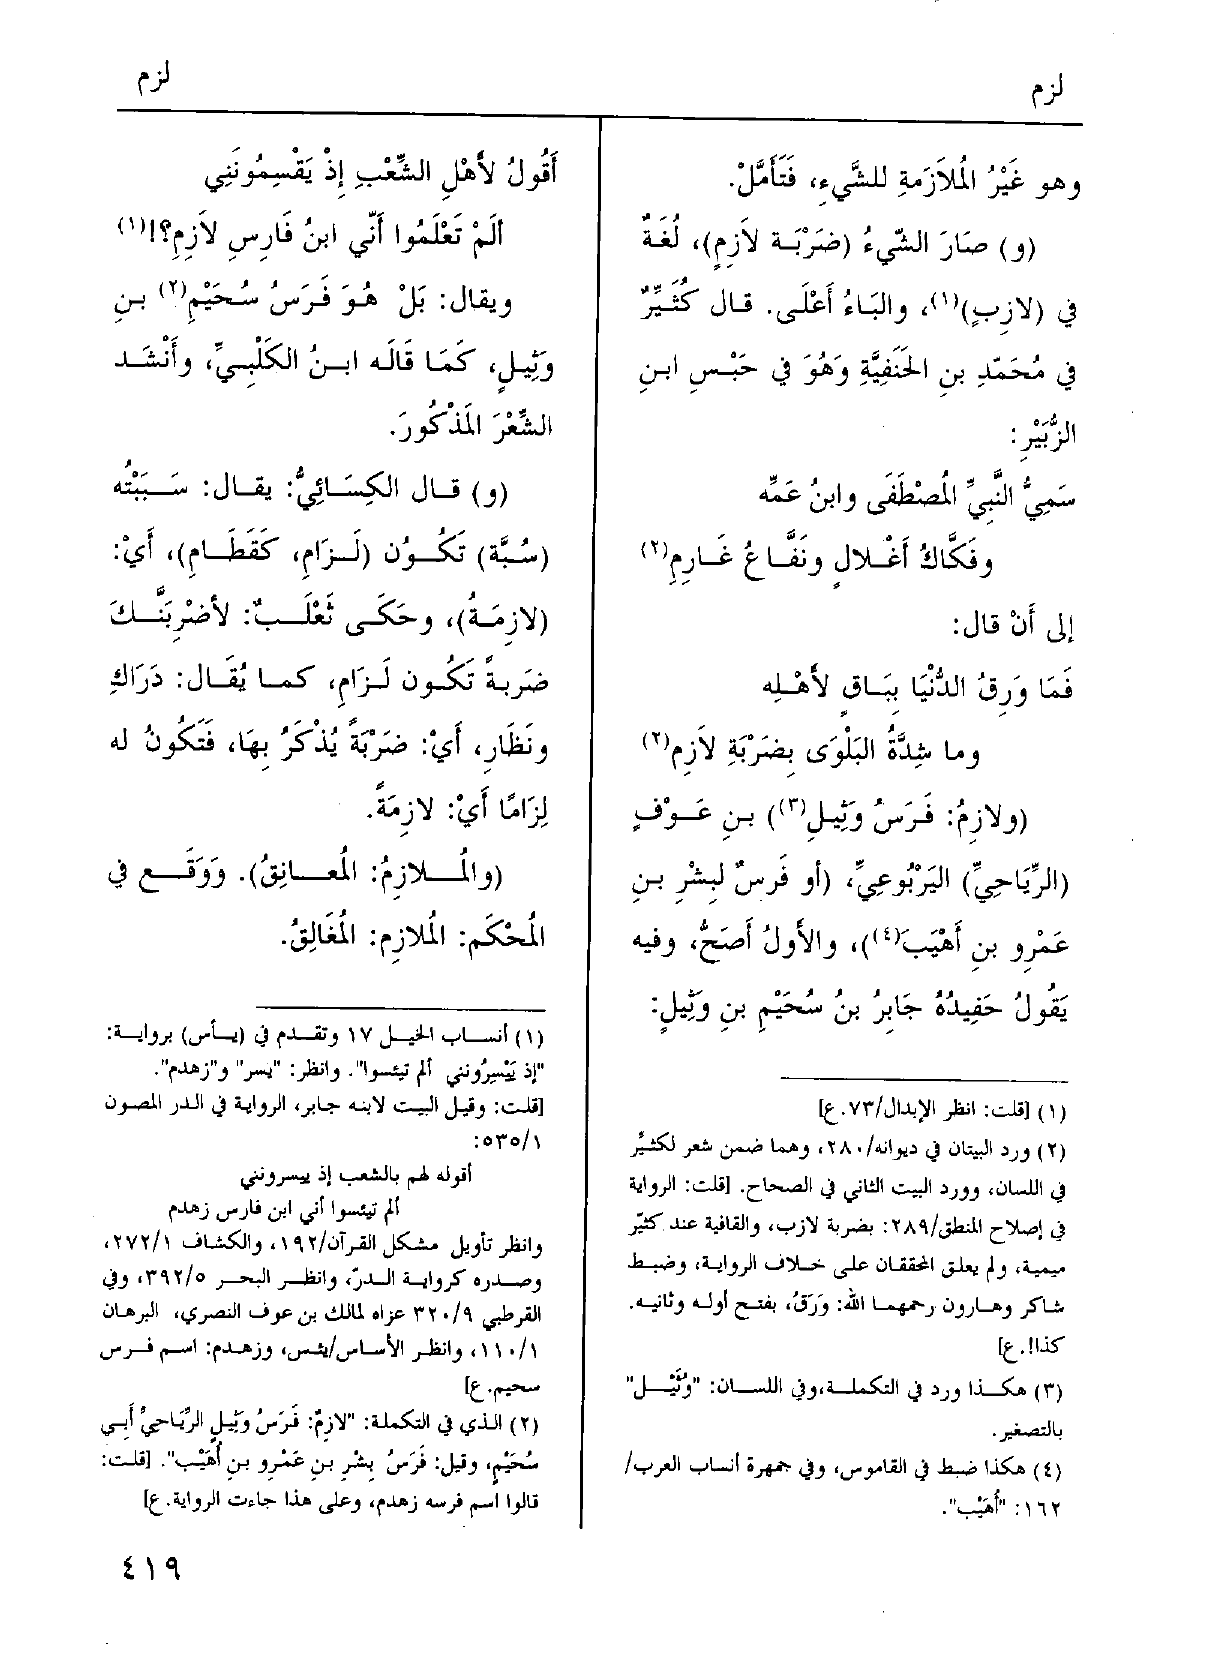 لزم
لزم
وهو غَيْرُ الْمُلَازَمَةِ للشَّيءِ، فَتَأَمَّلْ.
(و) صَارَ الشّيءُ (ضَرْبَة لازِمٍ)، لُغَةٌ
في (لازِبٍ)(١)، والبَاءُ أَعْلَى. قال كُثَيِّرٌ
في مُحَمَّدِ بنِ الحَنَفِيَّةِ وَهُوَ في حَبْسِ ابنِ
الزُّبَيْرِ:
سَمِيُّ النَّبِيِّ الْمُصْطَفَى وابنُ عَمِّه
وفَكَّاكُ أَغْلالٍ ونَفَّاعُ غَارِمِ(٢)
إلى أَنْ قال:
فَمَا وَرِقُ الدُّنْيَا بِبَاقٍ لأَهْلِه
وما شِدَّةُ البَلْوَى بِضَرْبَةِ لازِمِ(٢)
(ولازِمُ: فَرَسُ وَثِيلِ(٣)) بنِ عَوْفٍ
(الرِّيَاحِيِّ) اليَرْبُوعِيِّ، (أو فَرَسٌ لِبِشْرِ بنِ
عَمْرِو بنِ أَهْيَبَ(٤))، والأولُ أَصَحُّ، وفيه
يَقُولُ حَفِيدُهُ جَابِرُ بنُ سُحَيْمِ بنِ وَثِيلٍ:
(١) [قلت: انظر الإبدال/٧٣. ع]
(٢) ورد البيتان في ديوانه/٢٨٠، وهما ضمن شعر لكثيِّر
في اللسان، وورد البيت الثاني في الصحاح. [قلت: الرواية
في إصلاح المنطق/٢٨٩: بضربة لازب، والقافية عند كثيِّر
ميمية، ولم يعلق المحققان على خلاف الرواية، وضبط
شاكر وهارون رحمهما الله: وَرَقُ، بفتح أوله وثانيه.
كذا!. ع]
(٣) هكذا ورد في التكملة، وفي اللسان: "وُثَيْل"
بالتصغير.
(٤) هكذا ضبط في القاموس، وفي جمهرة أنساب العرب/
١٦٢: "أُهَيْب".
أَقُولُ لأَهْلِ الشِّعْبِ إِذْ يَقْسِمُونَنِي
أَلَمْ تَعْلَمُوا أَنّي ابنُ فَارِسِ لازِمِ؟!(١)
ويقال: بَلْ هُوَ فَرَسُ سُحَيْمِ(٢) بنِ
وَثِيلٍ، كَمَا قَالَه ابنُ الكَلْبِيِّ، وأَنْشَد
الشِّعْرَ المَذْكُورَ.
(و) قال الكِسَائِيُّ: يقال: سَبَبْتُه
(سُبَّة) تَكُون (لَزَامِ، كَقَطَامِ)، أَيْ:
(لازِمَةُ)، وحَكَى ثَعْلَبٌ: لأَضْرِبَنَّكَ
ضَربةً تَكُون لَزَامِ، كما يُقَال: دَرَاكِ
ونَظَارِ، أَيْ: ضَرْبَةً يُذْكَرُ بِهَا، فَتَكُونُ له
لِزَامًا أَيْ: لازِمَةً.
(والْمُلازِمُ: الْمُعَانِقُ). وَوَقَع في
الْمُحْكَم: الْمُلازِم: الْمُغَالِقُ.
(١) أنساب الخيل ١٧ وتقدم في (يأس) برواية:
"إذ يَيْسِرُونني ألم تيئسوا". وانظر: "يسر" و"زهدم".
[قلت: وقيل البيت لابنه جابر، الرواية في الدر المصون
٥٣٥/١:
أقوله لهم بالشعب إذ ييسرونني
ألم تيئسوا أني ابن فارس زهدم
وانظر تأويل مشكل القرآن/١٩٢، والكشاف ٢٧٢/١،
وصدره كرواية الدرّ، وانظر البحر ٣٩٢/٥، وفي
القرطبي ٣٢٠/٩ عزاه لمالك بن عوف النصري، البرهان
١١٠/١، وانظر الأساس/يئس، وزهدم: اسم فرس
سحيم. ع]
(٢) الذي في التكملة: "لازِمٌ: فَرَسُ وَثِيلٍ الرِّيَاحِيِّ أَبِي
سُحَيْمٍ، وقيل: فَرَسُ بِشْرِ بنِ عَمْرِو بنِ أُهَيْبٍ". [قلت:
قالوا اسم فرسه زهدم، وعلى هذا جاءت الرواية. ع]
٤١٩